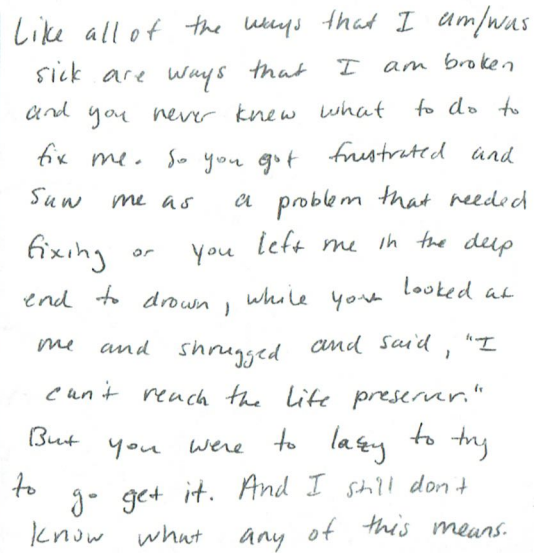 Like all of the ways that I am/was
sick are ways that I am broken
and you never knew what to do to
fix me. So you got frustrated and
saw me as a problem that needed
fixing or you left me in the deep
end to drown, while you looked at
me and shrugged and said, "I
can't reach the life preserver."
But you were to lazy to try
to go get it. And I still don't
know what any of this means.